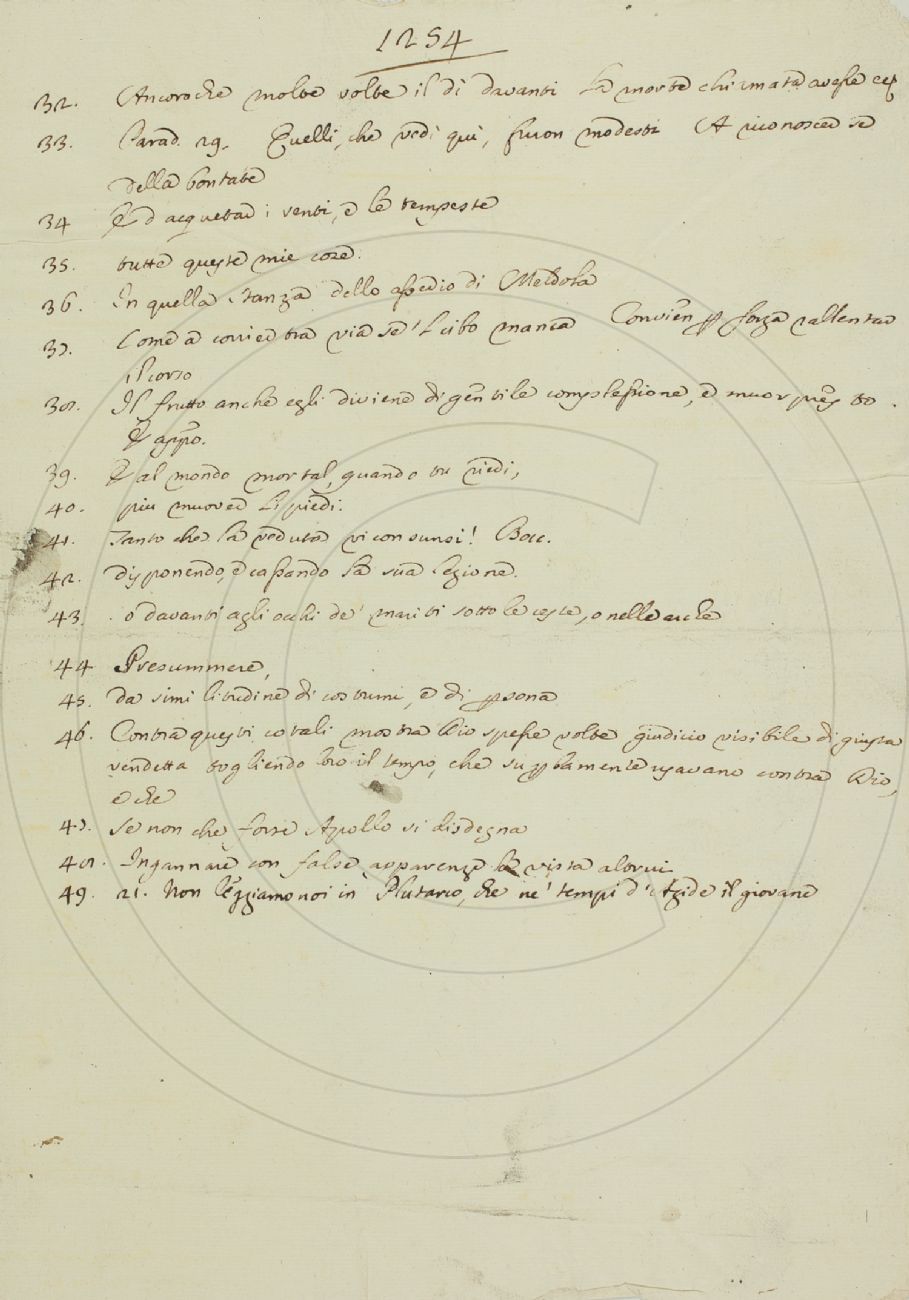 1254
32. Ancorachè molte volte il di davanti la morte chiamata avesse ec
33. Parad. 29. Quelli, che vedi quì, furon modesti A riconoscer se
della bontate
34 E d acquetar i venti, e le tempeste
35. tutte queste mie cose.
36. In quella stanza dello assedio di Meldola
37. Come a corrier tra via se 'l cibo manca Convien ꝑ forza rallentar
il corso
38. Il frutto anche egli diviene di gentile complessione, e muor
E appo.
39. E al mondo mortal, quando tu riedi,
40. più muover li piedi.
41. Tanto che la veduta vi consunsi! Bocc.
42. disponendo, e cassando la sua legione.
43. o davanti agli occhi de' mariti sotto le ceste, o nelle arche
44 Presummere,
45. da similitudine di costumi, e di ꝑsona
46. Contra questi cotali mostra Dio spesse volte giudicio visibile di giusta
vendetta togliendo loro il tempo, che suꝑbamente usavano contra Dio,
e che
47. Se non che forse Apollo si disdegna
48. Ingannare con false apparenze la vista altrui
49. 21. Non leggiamo noi in Plutarco, che ne' tempi d' Agide il giovane